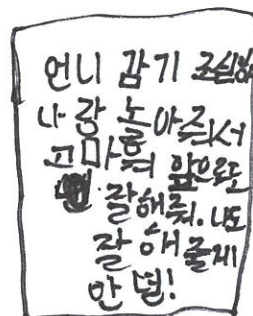 언니 감기 조심해
나랑 놀아줘서
고마훠 앞으로도
잘해줘. 나도
잘해줄게
안녕!